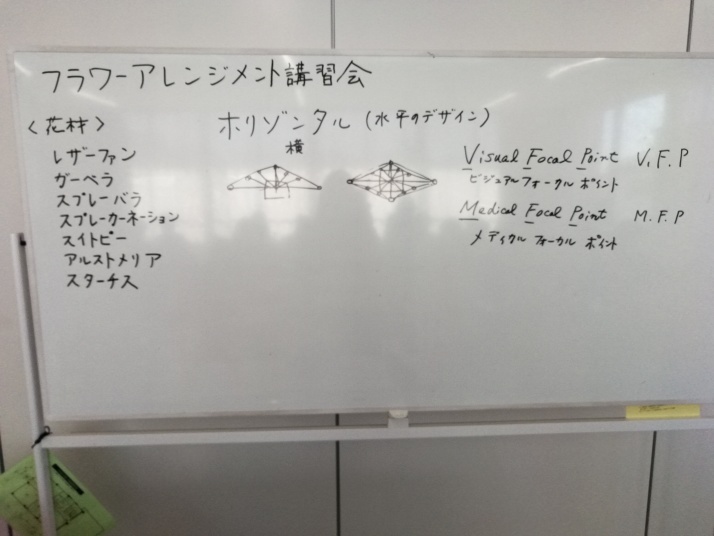 フラワーアレンジメント講習会
<花材>
レザーファン
ガーベラ
スプレーバラ
スプレーカーネーション
スイトピー
アルストメリア
スターチス
ホリゾンタル(水平のデザイン)
横
Visual Focal Point V.F.P
ビジュアルフォーカルポイント
Medical Focal Point M.F.P
メディカルフォーカルポイント